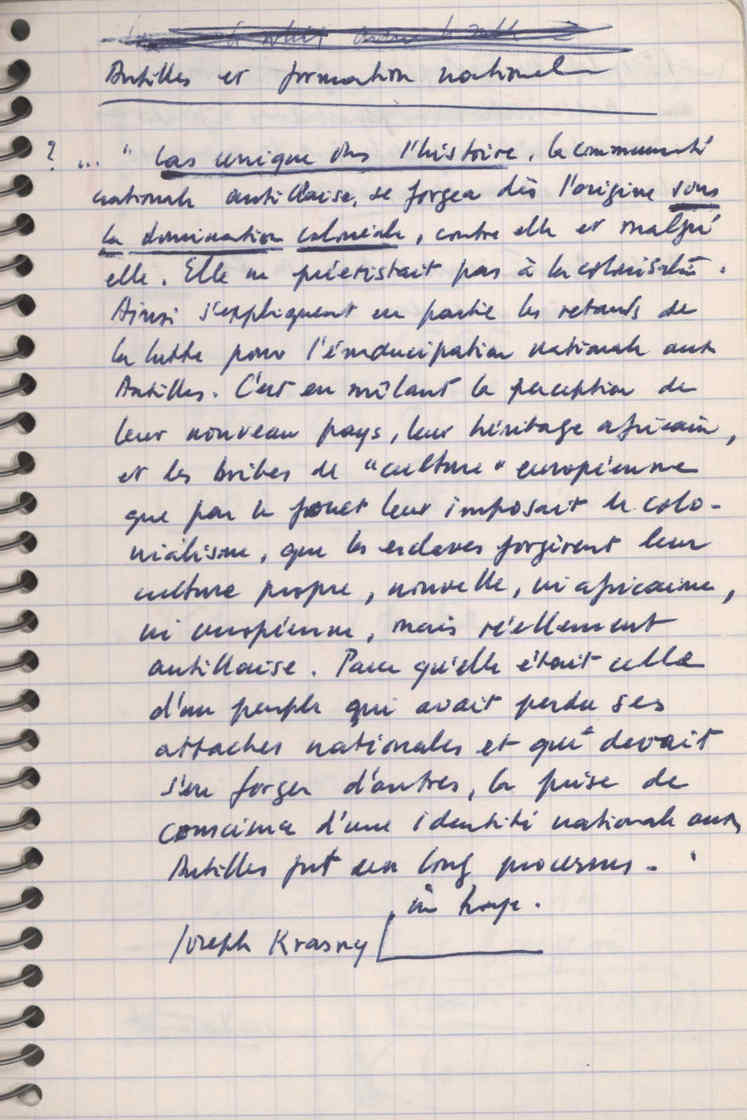 Antilles et formation nationale
? ... " Cas unique ds l'histoire, la communauté
nationale antillaise, se forgea dès l'origine sous
la domination coloniale, contre elle et malgré
elle. Elle ne préexistait pas à la colonisat°.
Ainsi s'expliquent en partie les retards de
la lutte pour l'émancipation nationale aux
Antilles. C'est en mêlant la perception de
leur nouveau pays, leur héritage africain,
et les bribes de "culture" européenne
que par le fouet leur imposait le colo-
nialisme, que les esclaves forgèrent leur
culture propre, nouvelle, ni africaine,
ni européenne, mais réellement
antillaise. Parce qu'elle était celle
d'un peuple qui avait perdu ses
attaches nationales et qui devait
s'en forger d'autres, la prise de
conscience d'une identité nationale aux
Antilles fut un long processus. "
Joseph Krasny